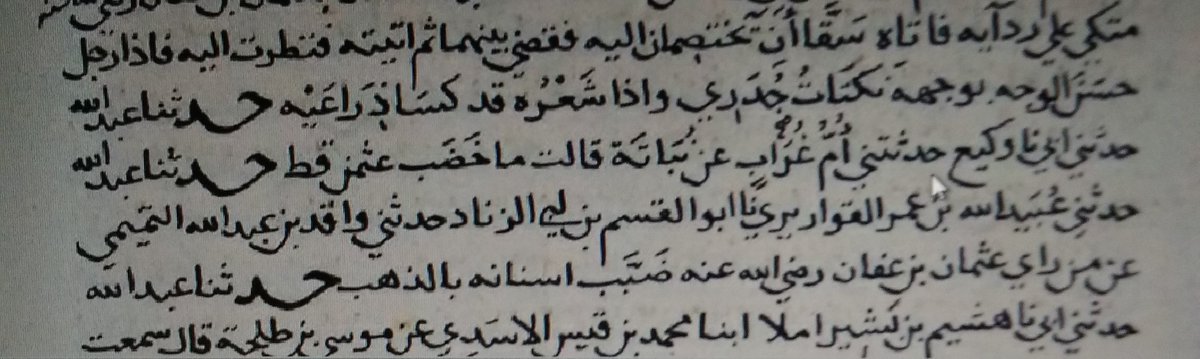 متكي على ردآيه فاتاه سَقَّاأن يختصمان اليه فقضى بينهما ثم اتيته فنظرت اليه فاذا رجل
حسن الوجه بوجهه نكتات جُدَري واذا شَعْرُه قد كسا ذِراعَيْه حدثنا عبد الله
حدثني ابي نا وكيع حدثتني أُمُّ غُرَاب عن بُنَانَة قالت ما خَضَب عثمن قط حدثنا عبد الله
حدثني عُبَيد الله بن عمر القواريري نا ابو القسم بن ابي الزناد حدثني واقد بن عبد الله التميمي
عن من راي عثمان بن عفان رضي الله عنه ضَبَّب اسنانه بالذهب حدثنا عبد الله
حدثني ابي نا هشيم بن بَشير املا ابنا محمد بن قيس الاسَدي عن موسى بن طلحة قال سمعت